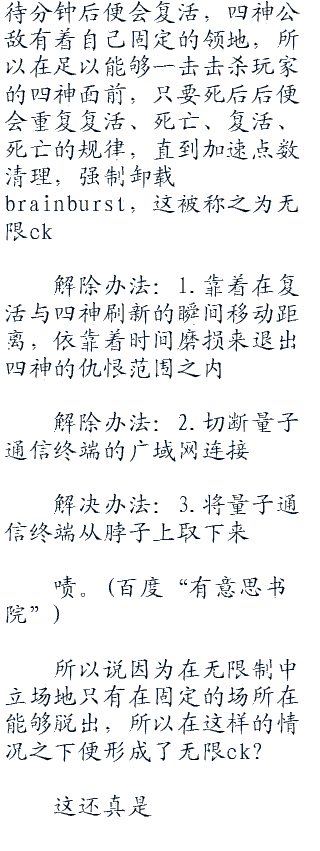 待分钟后便会复活，四神公
敌有着自己固定的领地，所
以在足以能够一击击杀玩家
的四神面前，只要死后后便
会重复复活、死亡、复活、
死亡的规律，直到加速点数
清理，强制卸载
brainburst，这被称之为无
限ck
解除办法：1.靠着在复
活与四神刷新的瞬间移动距
离，依靠着时间磨损来退出
四神的仇恨范围之内
解除办法：2.切断量子
通信终端的广域网连接
解决办法：3.将量子通
信终端从脖子上取下来
啧。(百度“有意思书
院”)
所以说因为在无限制中
立场地只有在固定的场所在
能够脱出，所以在这样的情
况之下便形成了无限ck？
这还真是